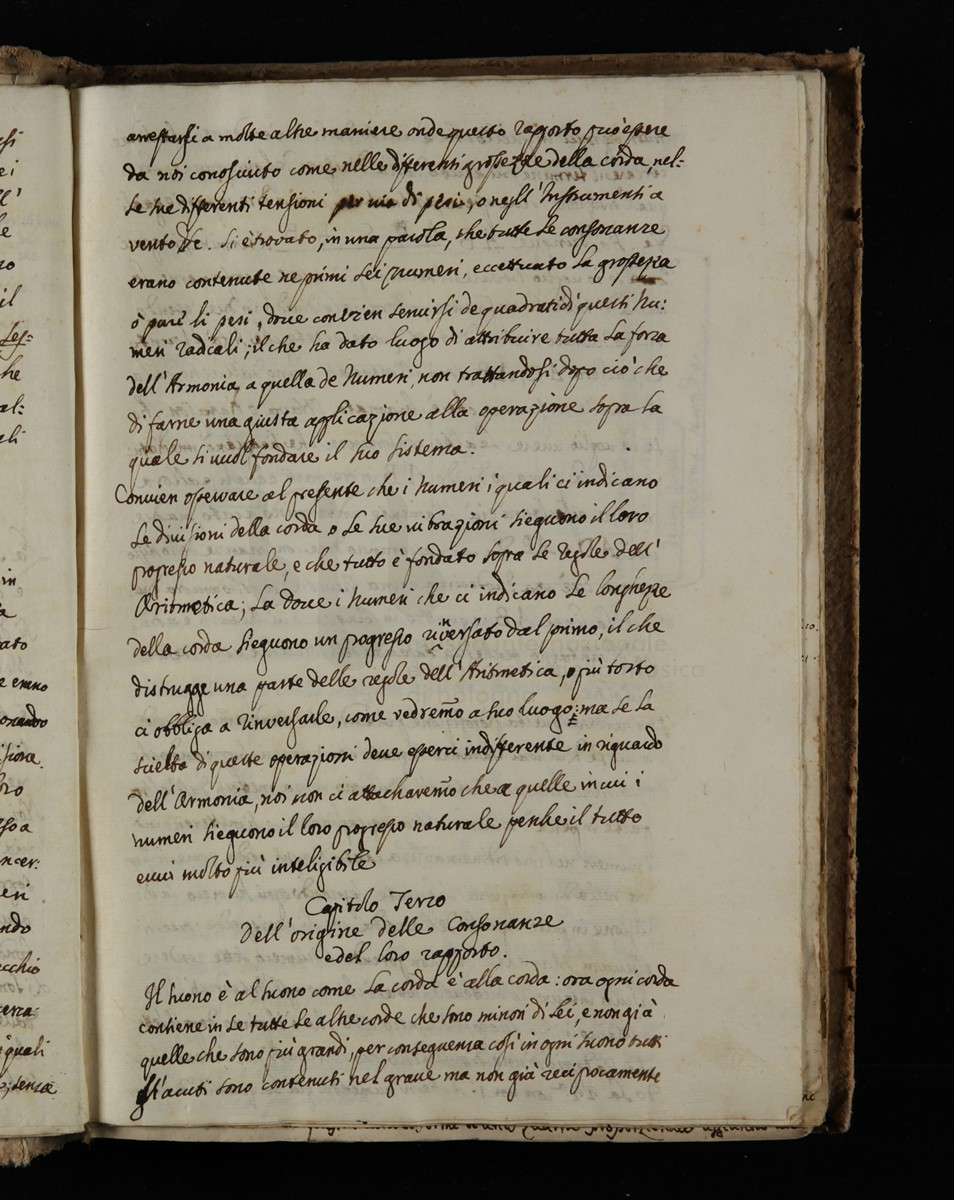 arrestarsi a molte altre maniere onde questo rapporto può essere
da noi conosciuto come nelle differenti grossezze della corda, nel-
le sue differenti tensioni per via di pesi, o negl' Instrumenti a
vento &c. Si è trovato, in una parola, che tutte le consonanze
erano contenute ne primi sei numeri, eccettuato la grossezza
ò pure li pesi, dove convien servirsi de quadrati di questi Nu:
meri radicali; il che ha dato luogo di attribuire tutta la forza
dell'Armonia a quella de Numeri, non trattandosi dopo ciò che
di farne una giusta applicazione alla operazione sopra la
quale si vuol fondare il suo sistema.
Convien osservare al presente che i Numeri i quali ci indicano
le divisioni della corda o le sue vibrazioni sieguono il loro
progresso naturale, e che tutto è fondato sopra le regole dell'
Aritmetica; la dove i Numeri che ci indicano le longhezze
della corda sieguono un progresso rinversato dal primo, il che
distrugge una parte delle regole dell'Aritmetica, o più tosto
ci obbliga a rinversarle, come vedremo a suo luogo: ma se la
scielta di queste operazioni deve esserci indifferente in riguardo
dell'Armonia, noi non ci attacharemo che a quelle in cui i
numeri sieguono il loro progresso naturale perche il tutto
evvi molto più inteligibile
Capitolo Terzo
Dell'origine delle Consonanze
e del loro rapporto.
Il suono è al suono come la corda è alla corda: ora ogni corda
contiene in se tutte le altre corde che sono minori di lei, e non già
quelle che sono più grandi, per conseguenza così in ogni suono tutti
gl'acuti sono contenuti nel grave ma non già reciprocamente